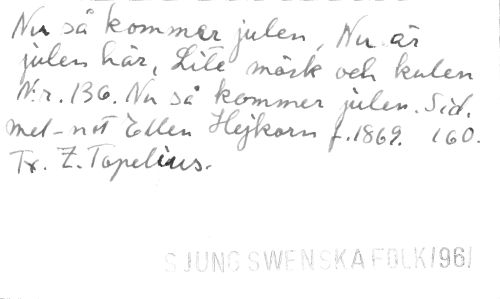 Nu så kommer julen, Nu är
julen här, Lite mörk och kulen
Nr. 136. Nu så kommer julen. Sid.
mel-not Ellen Hejkorn f. 1869. 160.
Tx. Z. Topelius.
SJUNG SWENSKA FOLK/96/